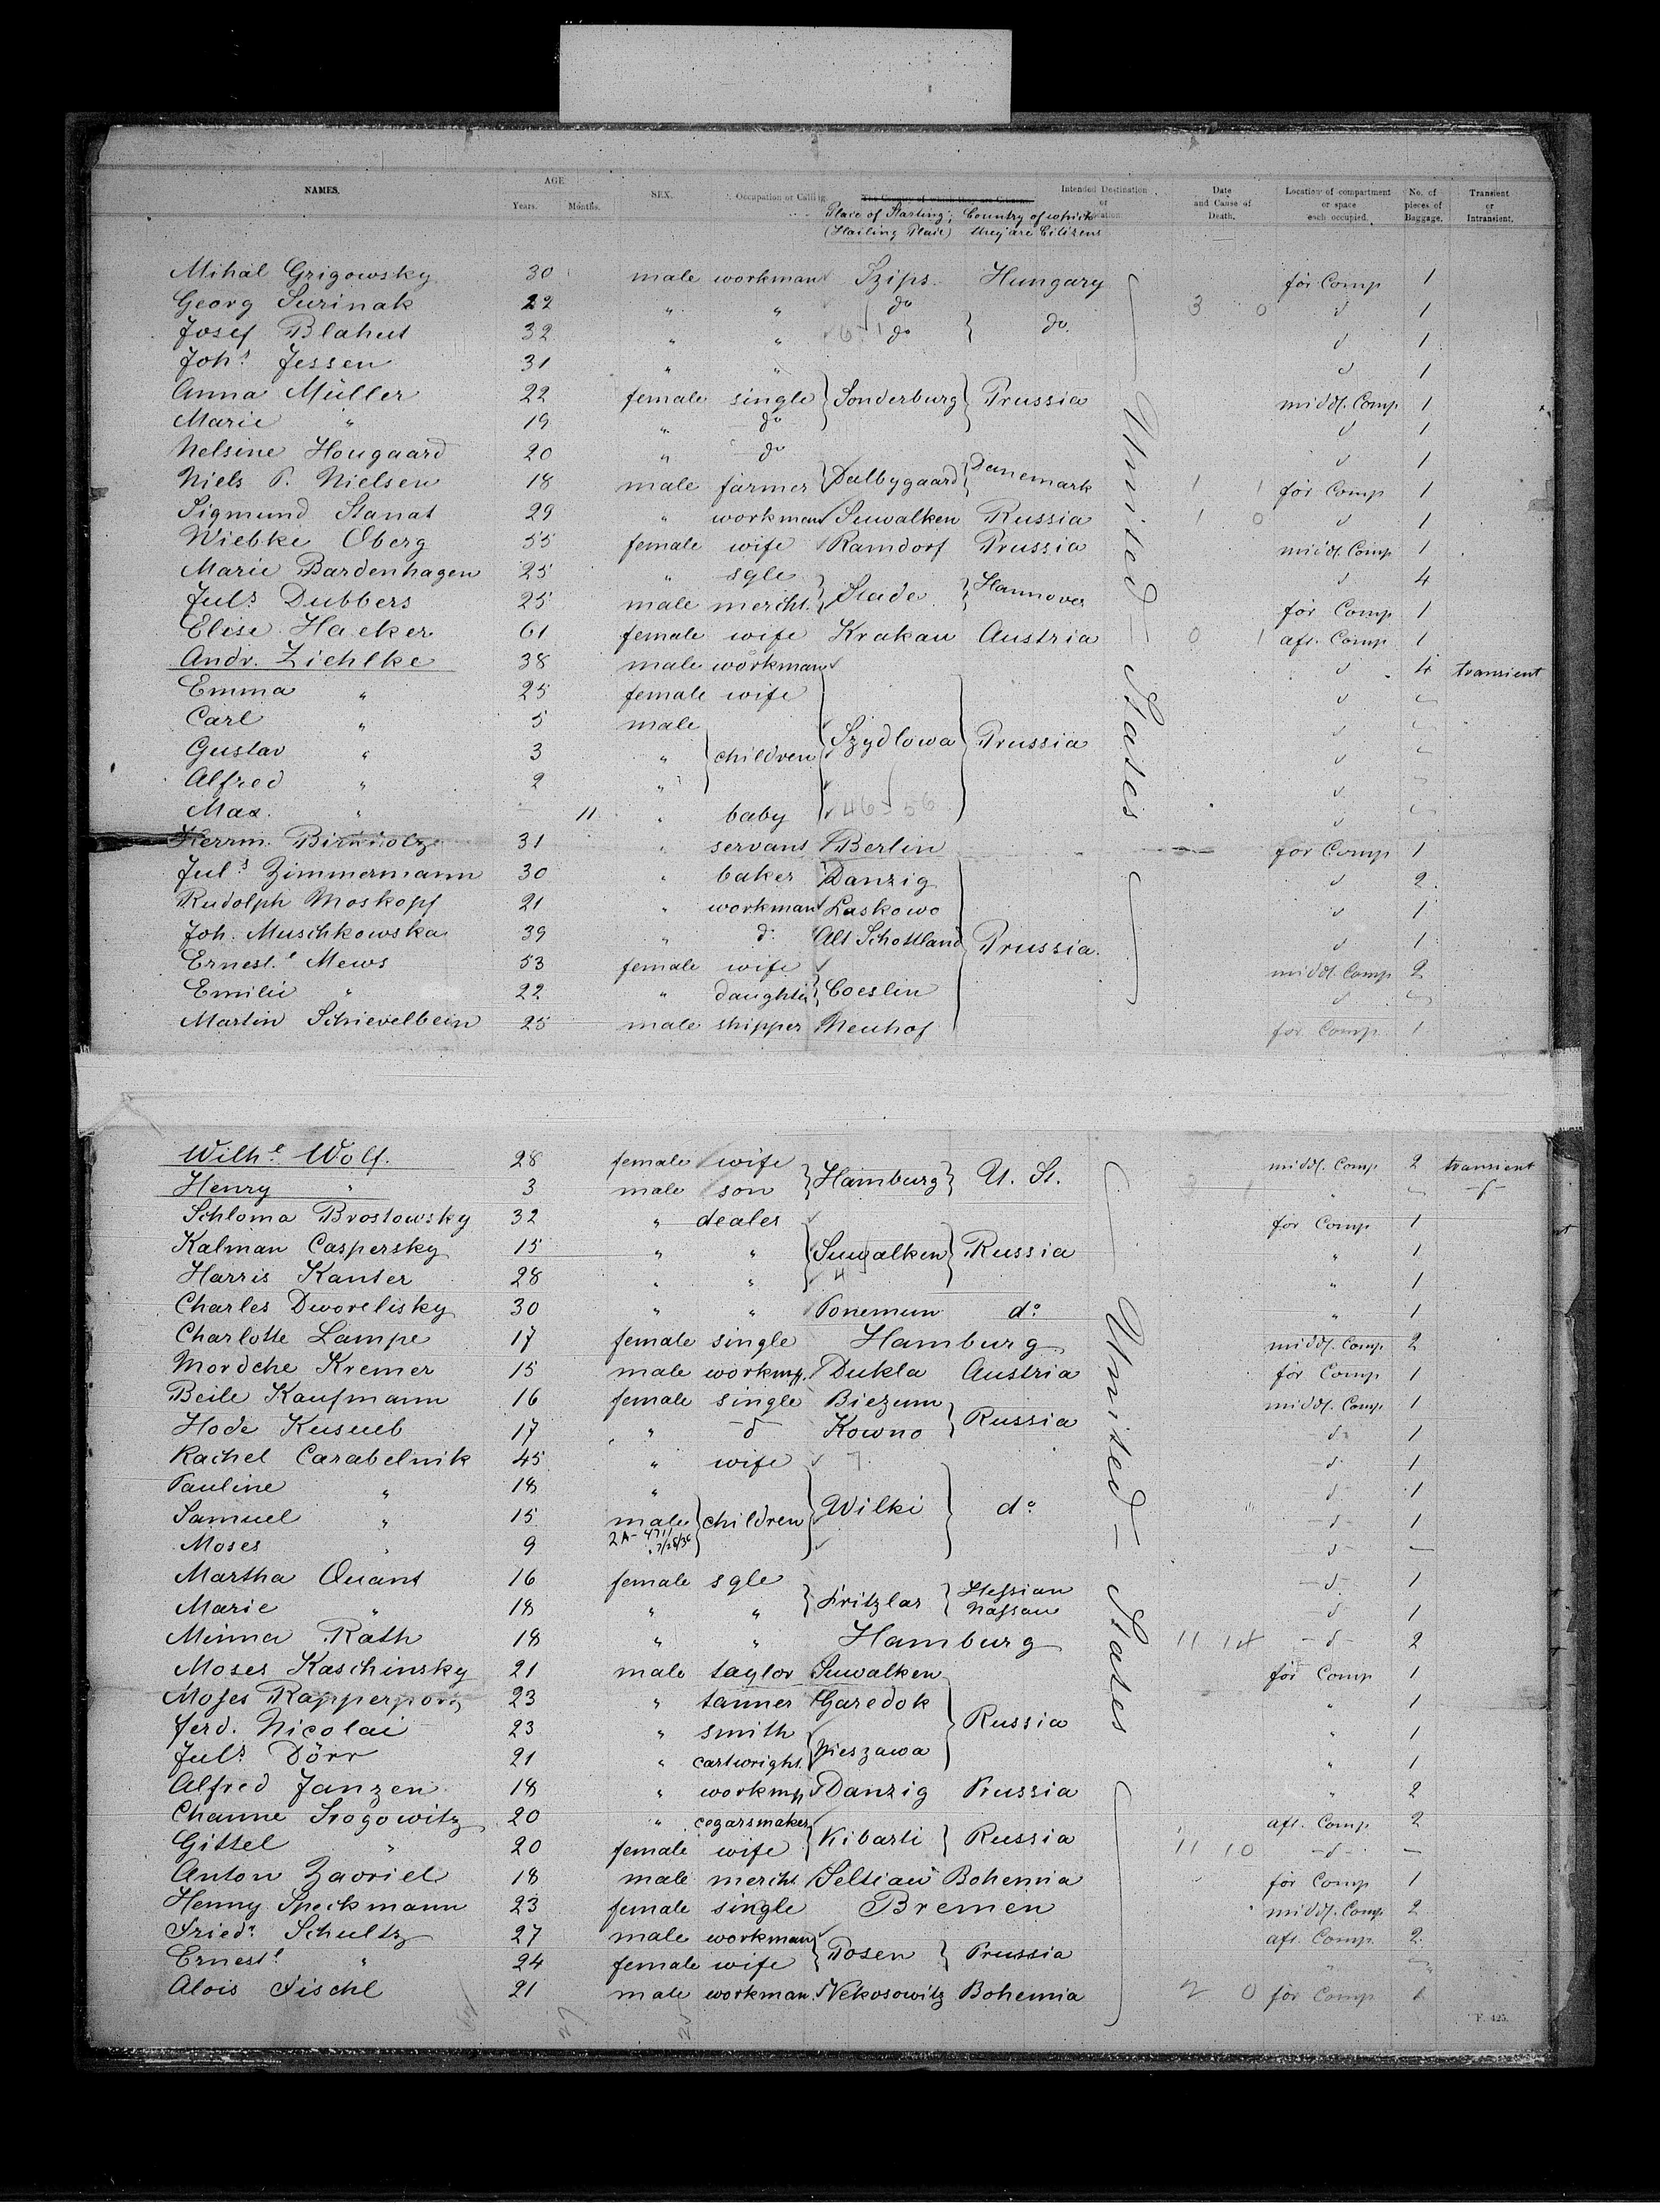 NAMES. AGE. SEX. Occupation or Calling. Intended Destination or Location. Date and Cause of Death. Location of compartment or space each occupied. No. of pieces of Baggage. Transient or Intransient.
Years. Months. Place of Starting; Country of which
(Hailing Place) they are Citizens
Mihál Grigowsky 30 male workman Szips Hungary för Comp 1
Georg Surinak 22 " " do 3 0 d 1
Josef Blahut 32 " " 6 1 do } do. d 1
Johs Jessen 31 " " d 1
Anna Müller 22 female single } Sonderburg } Prussia middl. Comp 1
Marie " 19 " do d 1
Nelsine Hougaard 20 " do d 1
Niels P. Nielsen 18 male farmer } Dalbygaard } Danemark 1 1 för Comp 1
Sigmund Stanat 29 " workman Suwalken Russia 1 0 d 1
Wiebke Oberg 55 female wife Ramdorf Prussia middl. Comp 1
Marie Bardenhagen 25 " sgle d 4
Juls Dubbers 25 male mercht. } Stade } Hannover för Comp 1
Elise Hacker 61 female wife Krakau Austria 0 1 aft. Comp 1
Andr. Ziehlke 38 male workman d 4 transient
Emma " 25 female wife d
Carl " 5 male d
Gustav " 3 " } children Szydlowa } Prussia d
Alfred " 2 " d
Max " 11 " baby 46 56 d
Herrm. 31 " servant Berlin för Comp 1
Juls Zimmermann 30 " baker Danzig d 2
Rudolph Moskopf 21 " workman Laskowo d 1
Joh. Muschkowska 39 " d Alt Schottland } Prussia. d 1
Ernest.e Mews 53 female wife middl. Comp 2
Emilie " 22 " daughter } Coeslin d
Martin Schievelbein 25 male shipper Neuhof för Comp 1
United States
Wilhe Wolf. 28 female wife middl. Comp 2 transient
Henry " 3 male son } Hamburg } U. St. 3 1 " d
Schloma Brostowsky 32 " dealer för Comp 1
Kalman Caspersky 15 " " } Suwalken } Russia " 1
Harris Kanter 28 " " 4 " 1
Charles Dworelisky 30 " " Ponemun do " 1
Charlotte Lampe 17 female single Hamburg middl. Comp 2
Mordche Kremer 15 male Dukla Austria för Comp 1
Beile Kaufmann 16 female single Biezum middl. Comp 1
Hode 17 " d Kowno } Russia d 1
Rachel Carabelnik 45 " wife 7 d 1
Pauline " 18 " d 1
Samuel " 15 male } children } Wilki } do d 1
Moses " 9 2A-4711 7/28/36 d —
Martha Quant 16 female sgle d 1
Marie " 18 " " } Fritzlar } Hessian Nassau d 1
Minna Rath 18 " " Hamburg 11 14 d 2
Moses Kaschinsky 21 male taylor Suwalken för Comp 1
Moses 23 " tanner Garedok " 1
Ferd. Nicolai 23 " smith } Russia " 1
Juls Dörr 21 " cartwright. Nieszawa " 1
Alfred Janzen 18 " Danzig Prussia " 2
Channe Srogowitz 20 " cegarsmaker aft. Comp 2
Gittel " 20 female wife } Kibarti } Russia 11 10 d —
Anton Zavriel 18 male mercht Seltiau Bohemia för Comp 1
Henny Speckmann 23 female single Bremen middl. Comp 2
Friedr Schultz 27 male workman aft. Comp. 2
Ernest.e " 24 female wife } Posen } Prussia "
Alois Fischl 21 male workman. Nekosowitz Bohemia 2 0 för Comp 1
United States
F. 425.